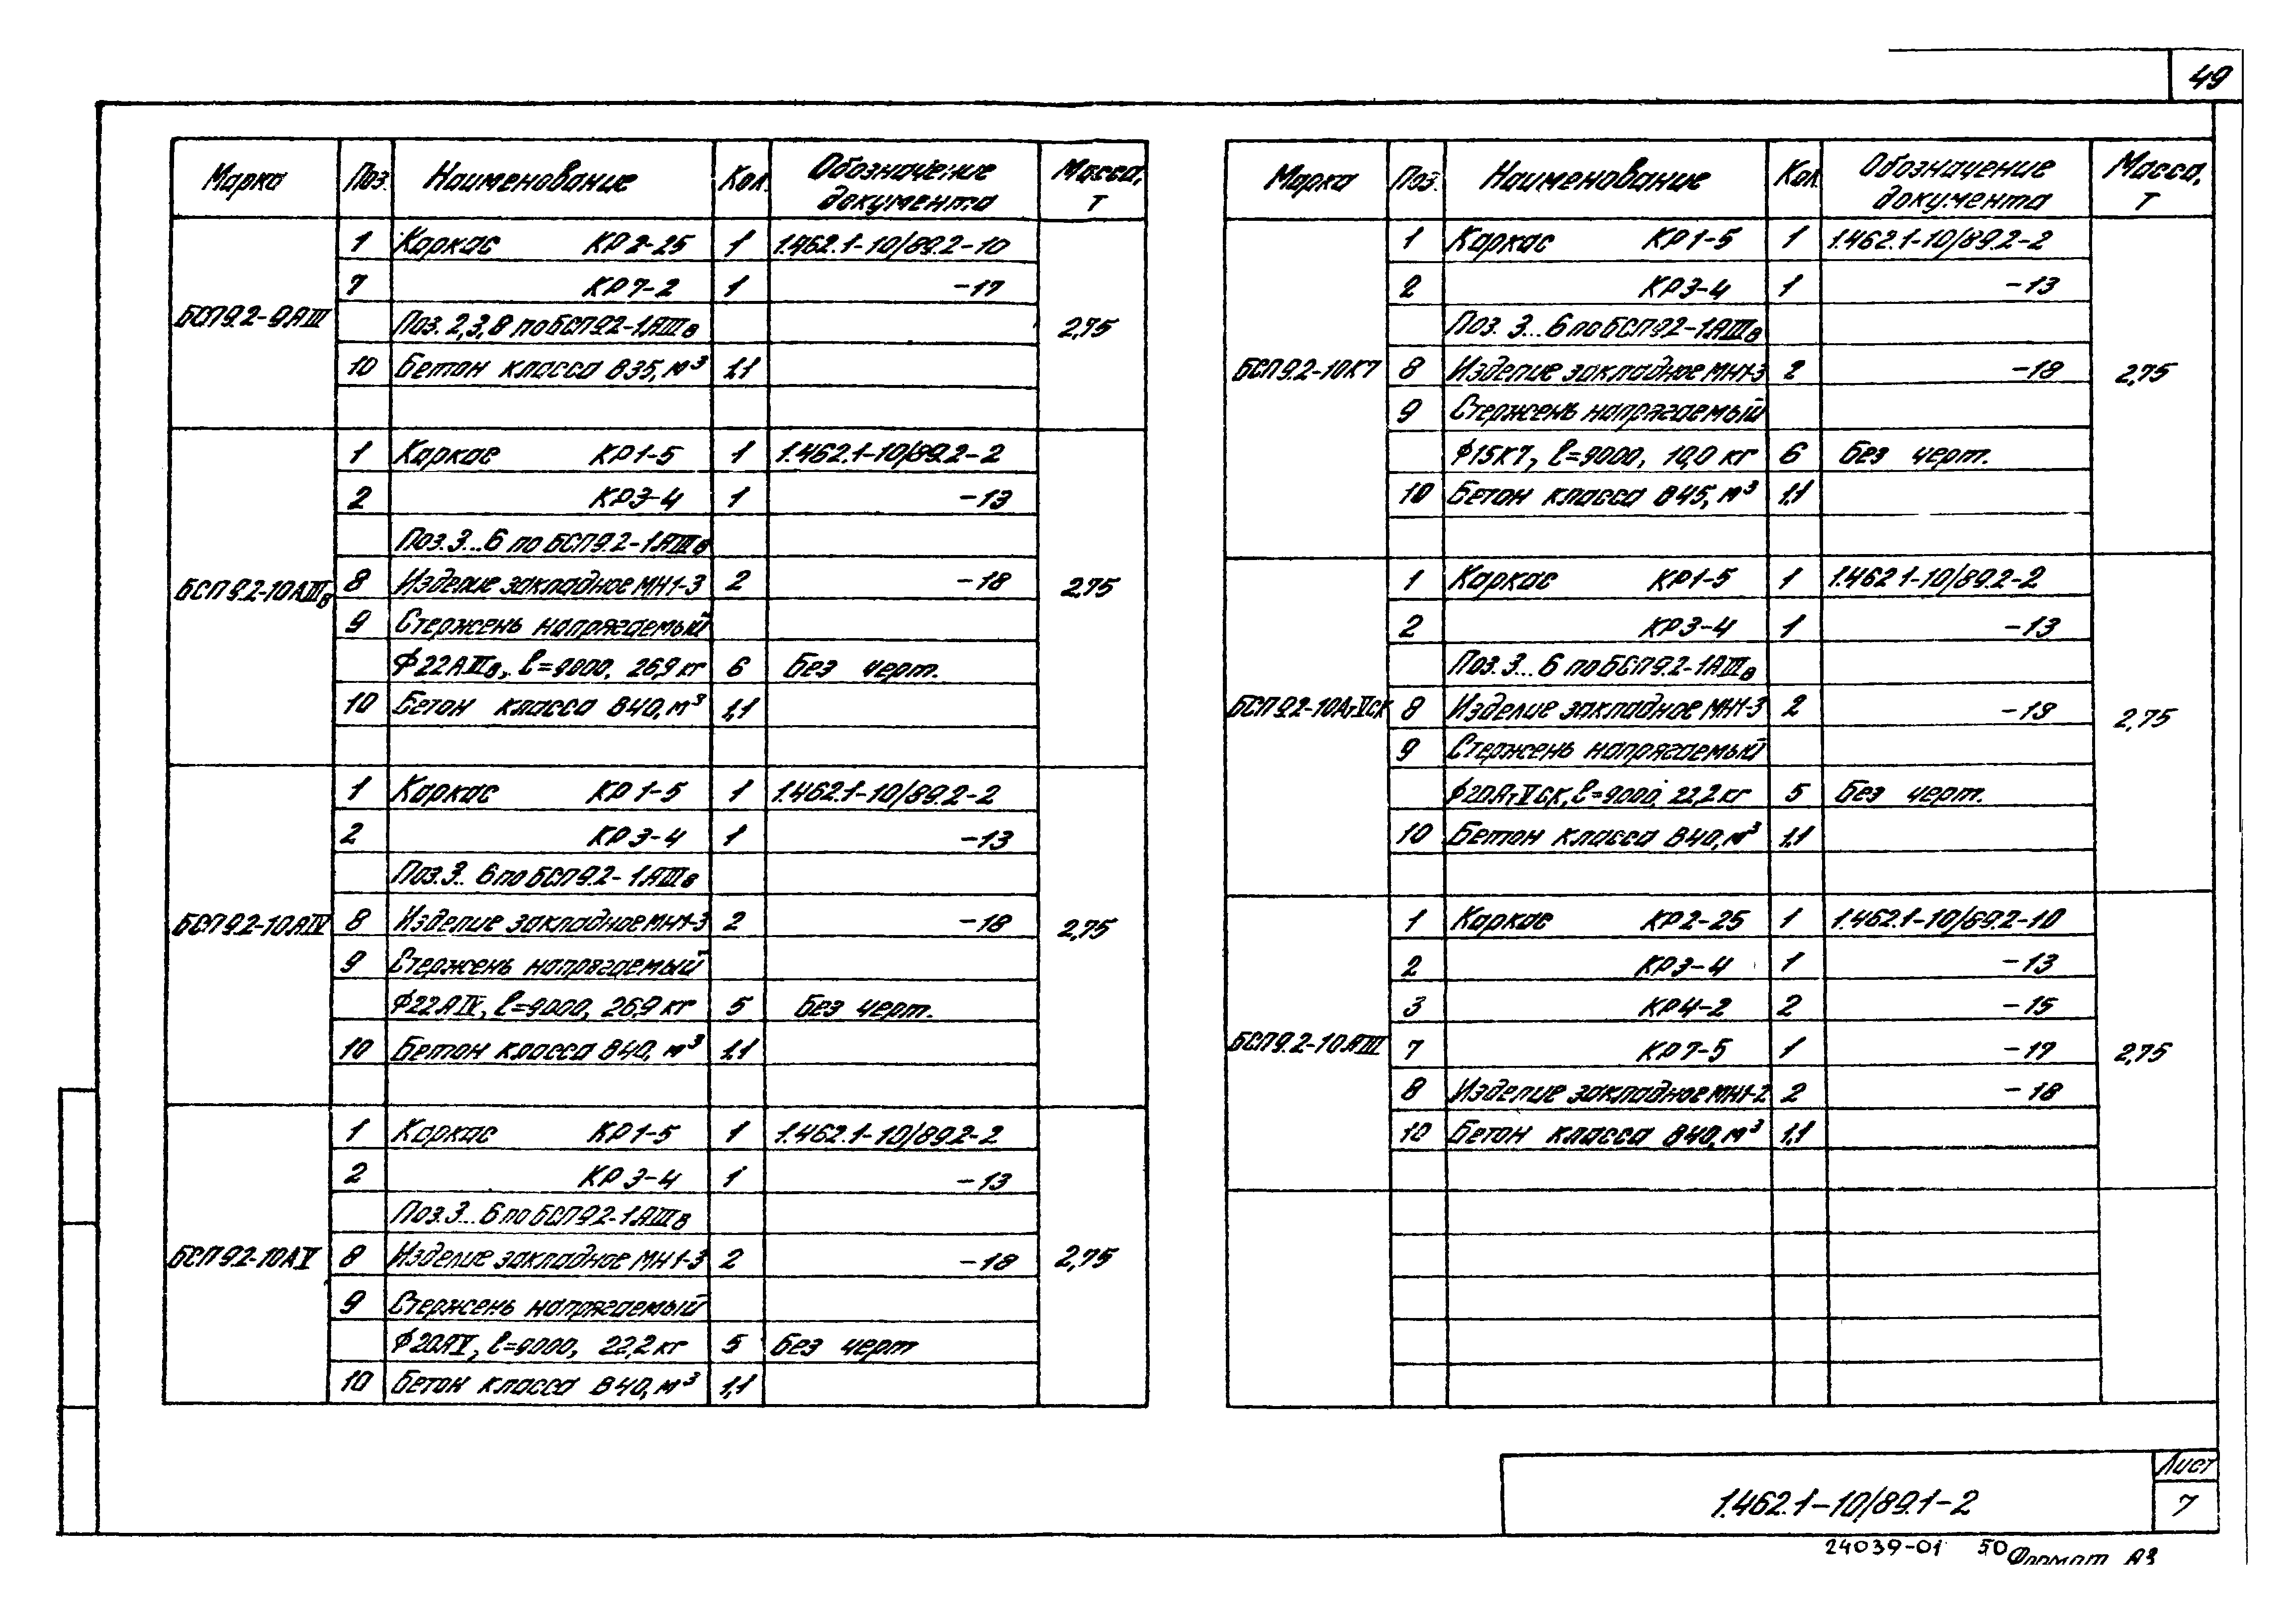 49
Марка Поз. Наименование Кол. Обозначение документа Масса, т
БСП9.2-9АIII
1 Каркас КР2-25 1 1.462.1-10/89.2-10
7 КР7-2 1 -17
Поз. 2,3,8 по БСП9.2-1АIIIв
2,75
10 Бетон класса В35, м³ 1,1
БСП9.2-10АIIIв
1 Каркас КР1-5 1 1.462.1-10/89.2-2
2 КР3-4 1 -13
Поз. 3...6 по БСП9.2-1АIIIв
8 Изделие закладное МН1-3 2 -18
2,75
9 Стержень напрягаемый
ф22АIIIв, ℓ=9000, 26,9 кг 6 Без черт.
10 Бетон класса В40, м³ 1,1
БСП9.2-10АIV
1 Каркас КР1-5 1 1.462.1-10/89.2-2
2 КР3-4 1 -13
Поз. 3.. 6 по БСП9.2-1АIIIв
8 Изделие закладное МН1-3 2 -18
2,75
9 Стержень напрягаемый
ф22АIV, ℓ=9000, 26,9 кг 5 Без черт.
10 Бетон класса В40, м³ 1,1
БСП9.2-10АV
1 Каркас КР1-5 1 1.462.1-10/89.2-2
2 КР3-4 1 -13
Поз. 3...6 по БСП9.2-1АIIIв
8 Изделие закладное МН1-3 2 -18
2,75
9 Стержень напрягаемый
ф20АV, ℓ=9000, 22,2 кг 5 Без черт
10 Бетон класса В40, м³ 1,1
Марка Поз. Наименование Кол. Обозначение документа Масса, т
БСП9.2-10К7
1 Каркас КР1-5 1 1.462.1-10/89.2-2
2 КР3-4 1 -13
Поз. 3...6 по БСП9.2-1АIIIв
8 Изделие закладное МН1-3 2 -18
2,75
9 Стержень напрягаемый
ф15К7, ℓ=9000, 10,0 кг 6 Без черт.
10 Бетон класса В45, м³ 1,1
БСП9.2-10АтVСК
1 Каркас КР1-5 1 1.462.1-10/89.2-2
2 КР3-4 1 -13
Поз. 3...6 по БСП9.2-1АIIIв
8 Изделие закладное МН1-3 2 -18
2,75
9 Стержень напрягаемый
ф20АтVСК, ℓ=9000, 22,2 кг 5 Без черт.
10 Бетон класса В40, м³ 1,1
БСП9.2-10АIII
1 Каркас КР2-25 1 1.462.1-10/89.2-10
2 КР3-4 1 -13
3 КР4-2 2 -15
7 КР7-5 1 -17
2,75
8 Изделие закладное МН1-2 2 -18
10 Бетон класса В40, м³ 1,1
1.462.1-10/89.1-2
Лист
7
24039-01 50 Формат А3